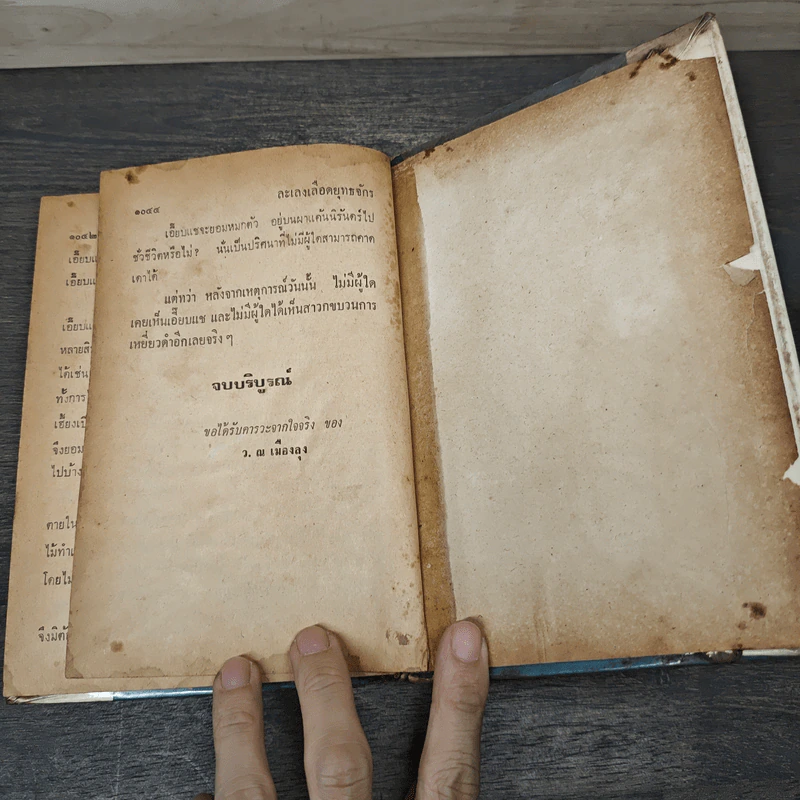 ๑๐๔๒
เอี๊ยบแ
เอี๊ยบแ
เอี๊ยบแ
หลายสิ
ได้เช่น
ทั้งการ
เอี้ยงเป็
จึงยอม
ไปบ้าง
ตายใน
ไม้ทำเ
โดยไม่
จึงมิต้
๑๐๔๔
ละเลงเลือดยุทธจักร
เอี๊ยบแชจะยอมหมกตัว อยู่บนผาแค้นนิรันดร์ไป
ชั่วชีวิตหรือไม่? นั่นเป็นปริศนาที่ไม่มีผู้ใดสามารถคาด
เดาได้
แต่ทว่า หลังจากเหตุการณ์วันนั้น ไม่มีผู้ใด
เคยเห็นเอี๊ยบแช และไม่มีผู้ใดได้เห็นสาวกขบวนการ
เหยี่ยวดำอีกเลยจริง ๆ
จบบริบูรณ์
ขอได้รับคารวะจากใจจริง ของ
ว. ณ เมืองลุง